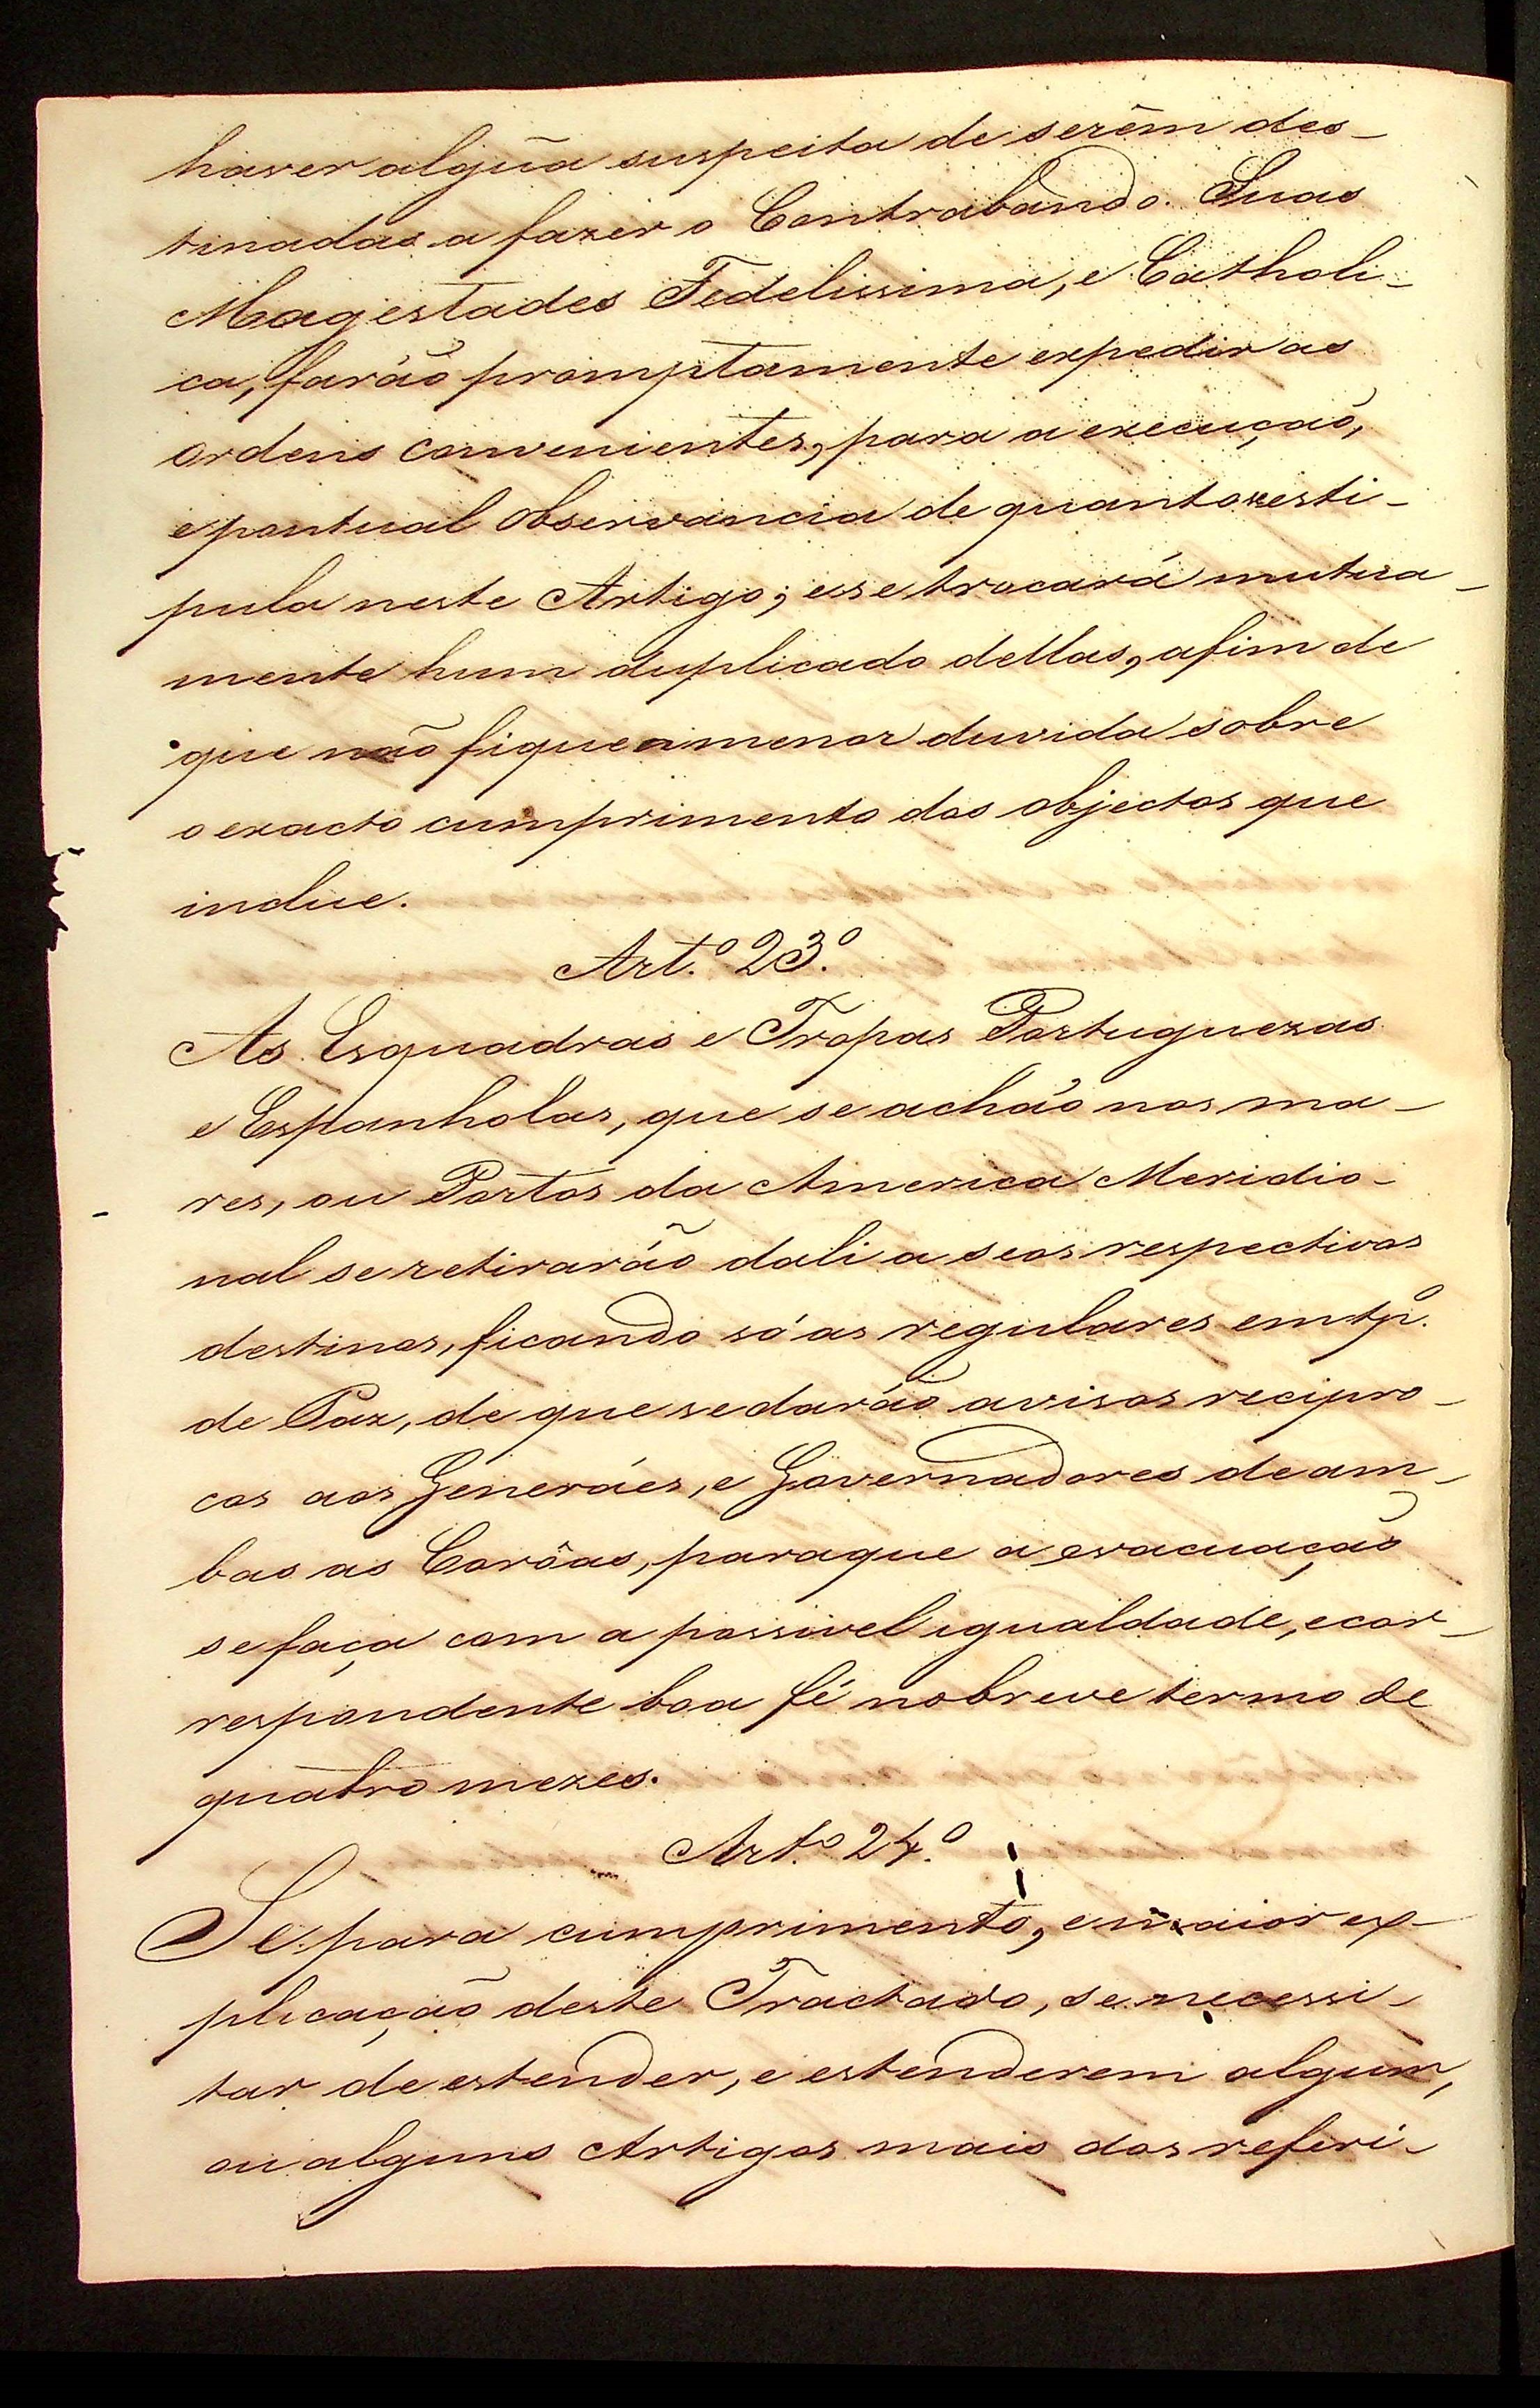 haver algũa suspeita de serêm des-
tinadas a fazer o Contrabando. Suas
Magestades Fedelissima, e Catholi-
ca, farão promptamente expedir as
ordens convenientes, para a execução,
e pontual observancia de quanto se sti-
pula neste Artigo; e se trocará mutua-
mente hum duplicado dellas, afim de
que não fique a menor duvida sobre
o exacto cumprimento dos objectos que
inclue.
Art.º 23.º
As Esquadras e Tropas Portuguezas
e Espanholas, que se achão nos ma-
res, ou Portos da America Meridio-
nal se retirarão dali a seos respectivos
destinos, ficando só as regulares em tp.º
de Paz, de que se darão avisos recipro-
cos aos Generáes, e Governadores de am-
bas as Corôas, para que a evacuação
se faça com a possivel igualdade, e cor-
respondente boa fé no breve termo de
quatro mezes.
Art.º 24.º
Se para cumprimento, e maior ex-
plicação deste Tractado, se necessi-
tar de estender, e estenderem algum,
ou alguns Artigos mais dos referi-